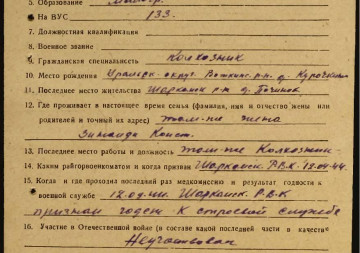 5. Образование
6. На ВУС 133.
7. Должностная квалификация
8. Военное звание
9. Гражданская специальность Колхозник
10. Место рождения округ. р-н. д.
11. Последнее место жительства Шарканск. р-н д. Починок
12. Где проживает в настоящее время семья (фамилия, имя и отчество жены или
родителей и точный их адрес) там-же жена
Зинаида Конст.
13. Последнее место работы и должность там-же Колхозник
14. Каким райгорвоенкоматом и когда призван Шарканск. Р.В.К. 12.04.44
15. Когда и где проходил последний раз медкомиссию и результат годности к
военной службе 12.04.44. Шарканск. Р.В.К
признан годен к строевой службе
16. Участие в Отечественной войне (в составе какой последней части в качестве
Неучаствовал